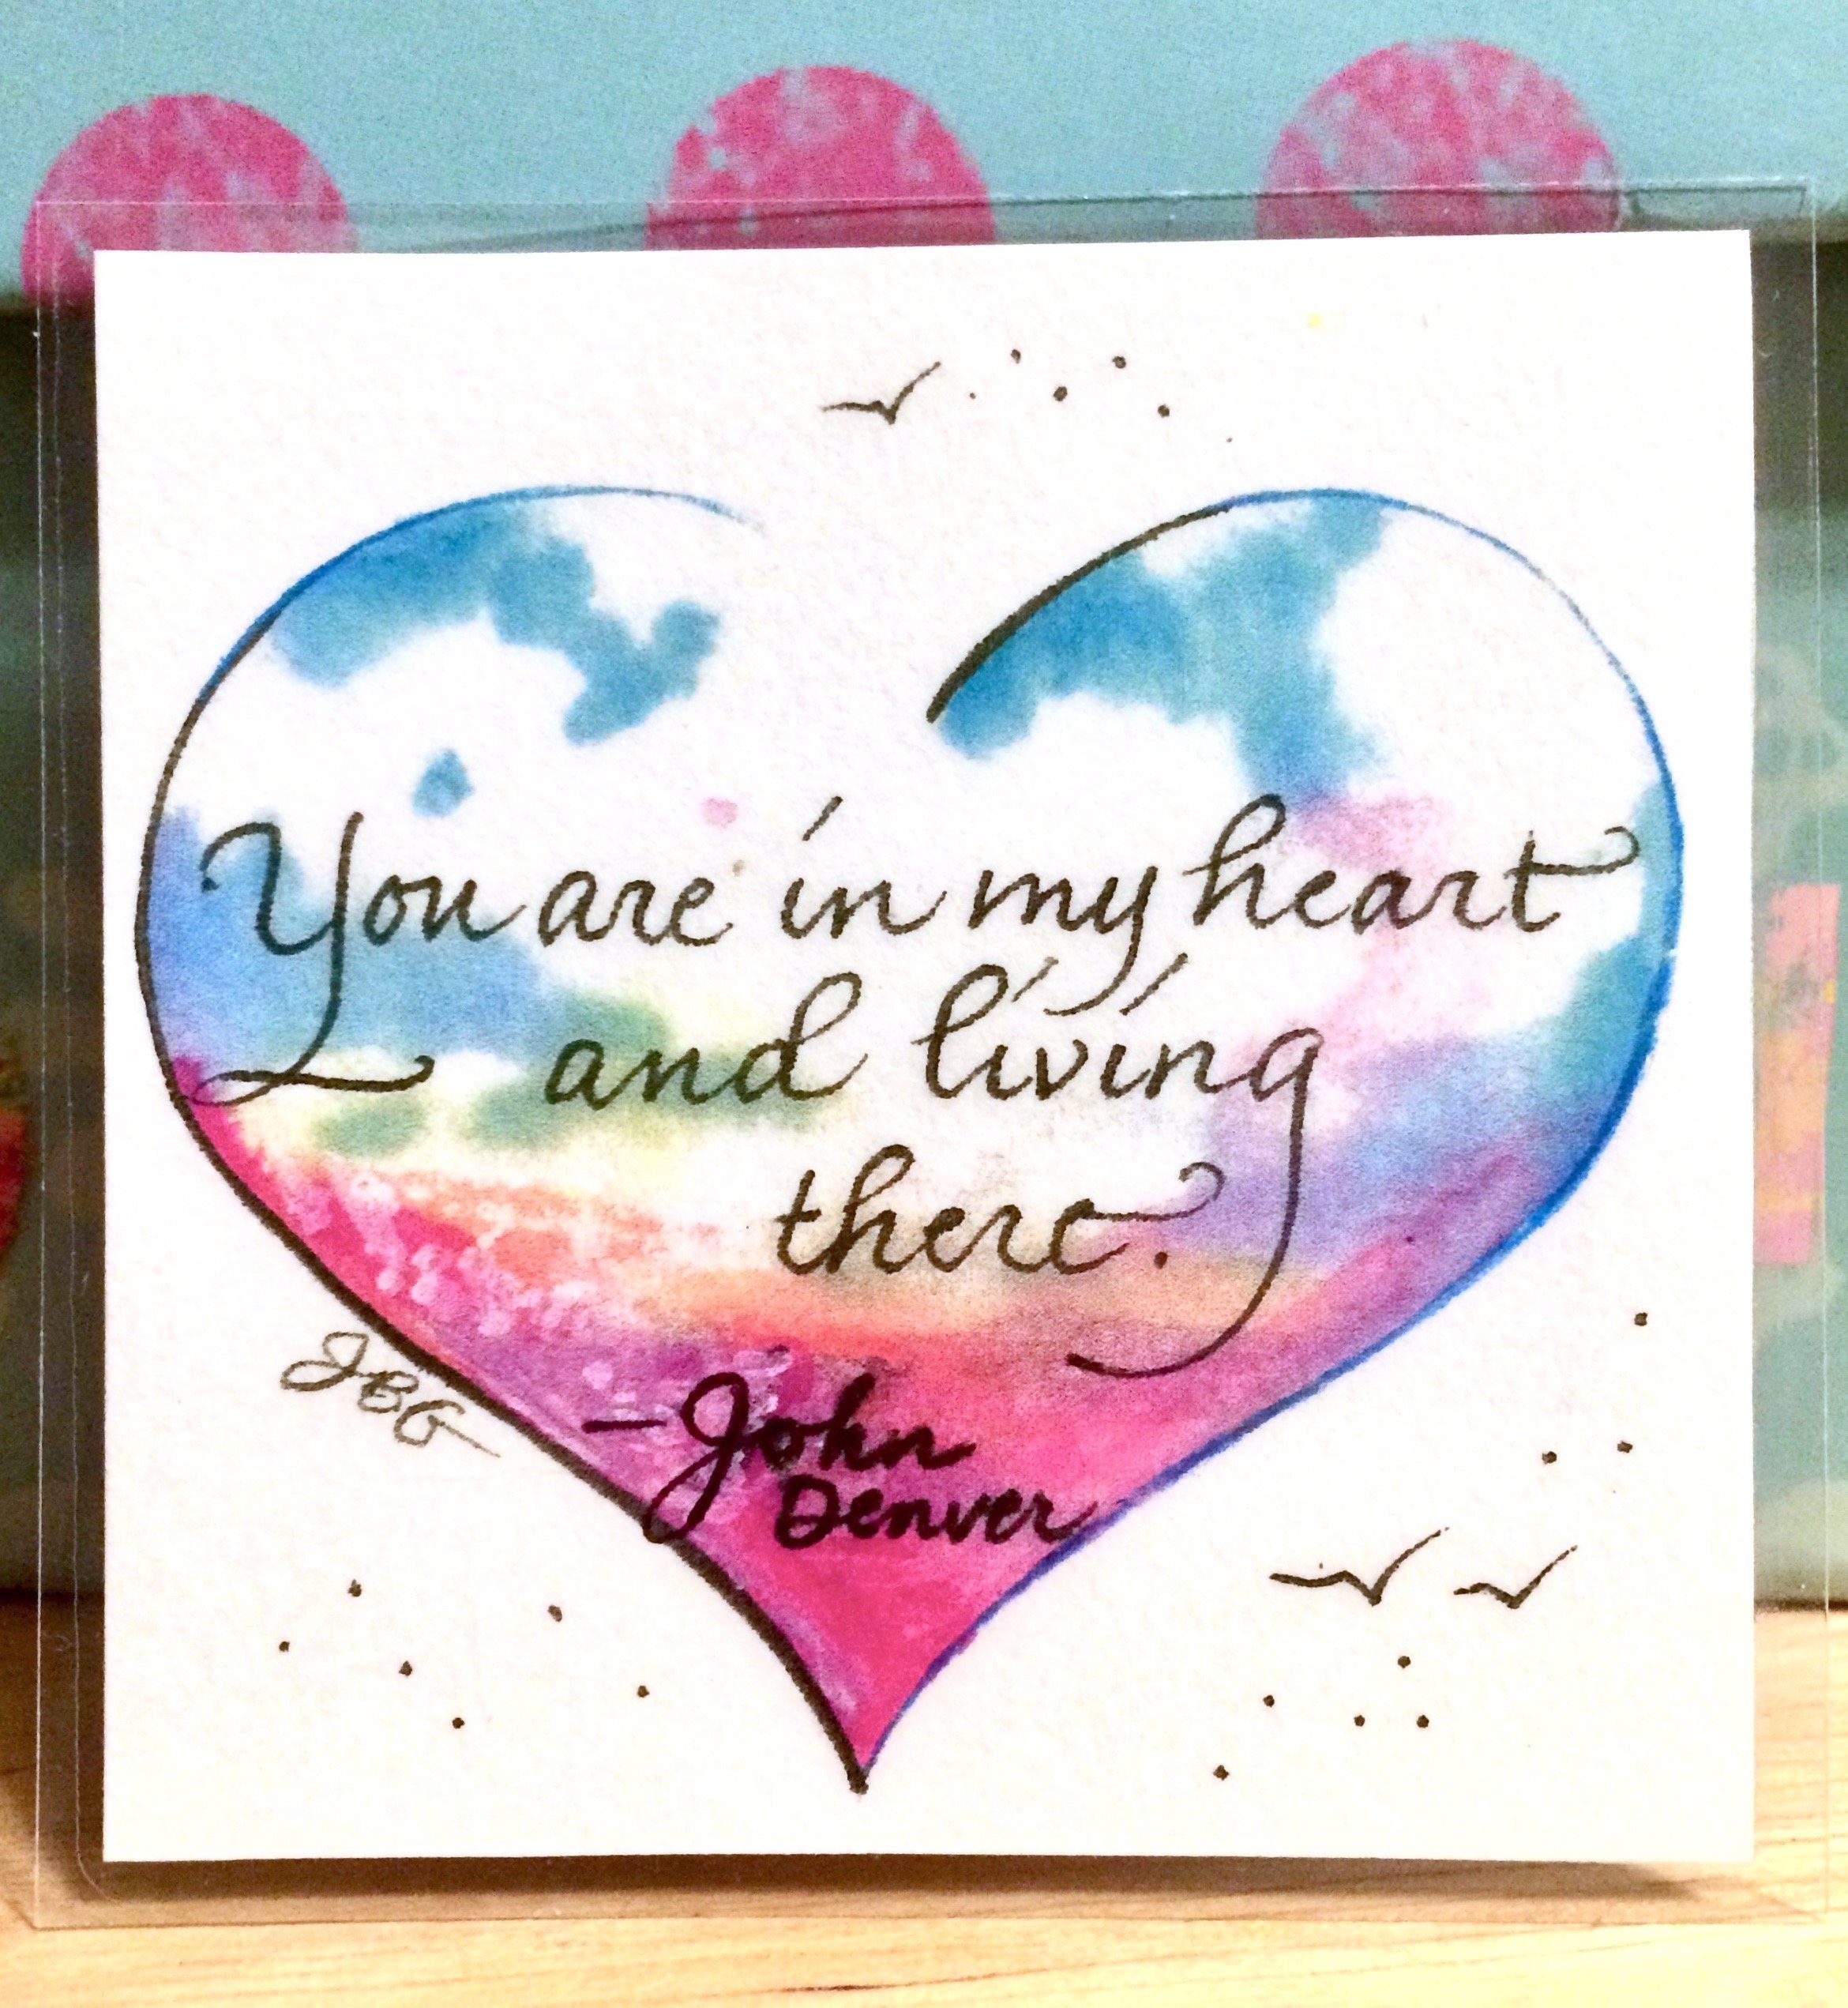 You are in my heart
and living
there.
JBG
-John
Denver